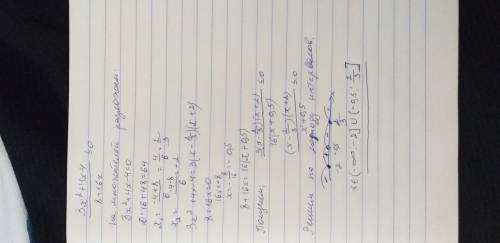 3x²+4x-4 ≤0
8+16x
На множители разложим:
3x²+4x-4=0
D=16+48=64
x₁= -4+8 = 4 = 2
6 6 3
x₂= -4-8 = -2
6
3x²+4x-4=3(x-2/3)(x+2)
8+16x=0
16x=-8
x=-8/16=-0,5
8+16x=16(x+0,5)
Получим: 3(x-2/3)(x+2) ≤0
16(x+0,5)
(x-2/3)(x+2) ≤0
x+0,5
Решим по методу интервалов:
-2 -0,5 2/3
x∈(-∞,-2]∪(-0,5; 2/3]